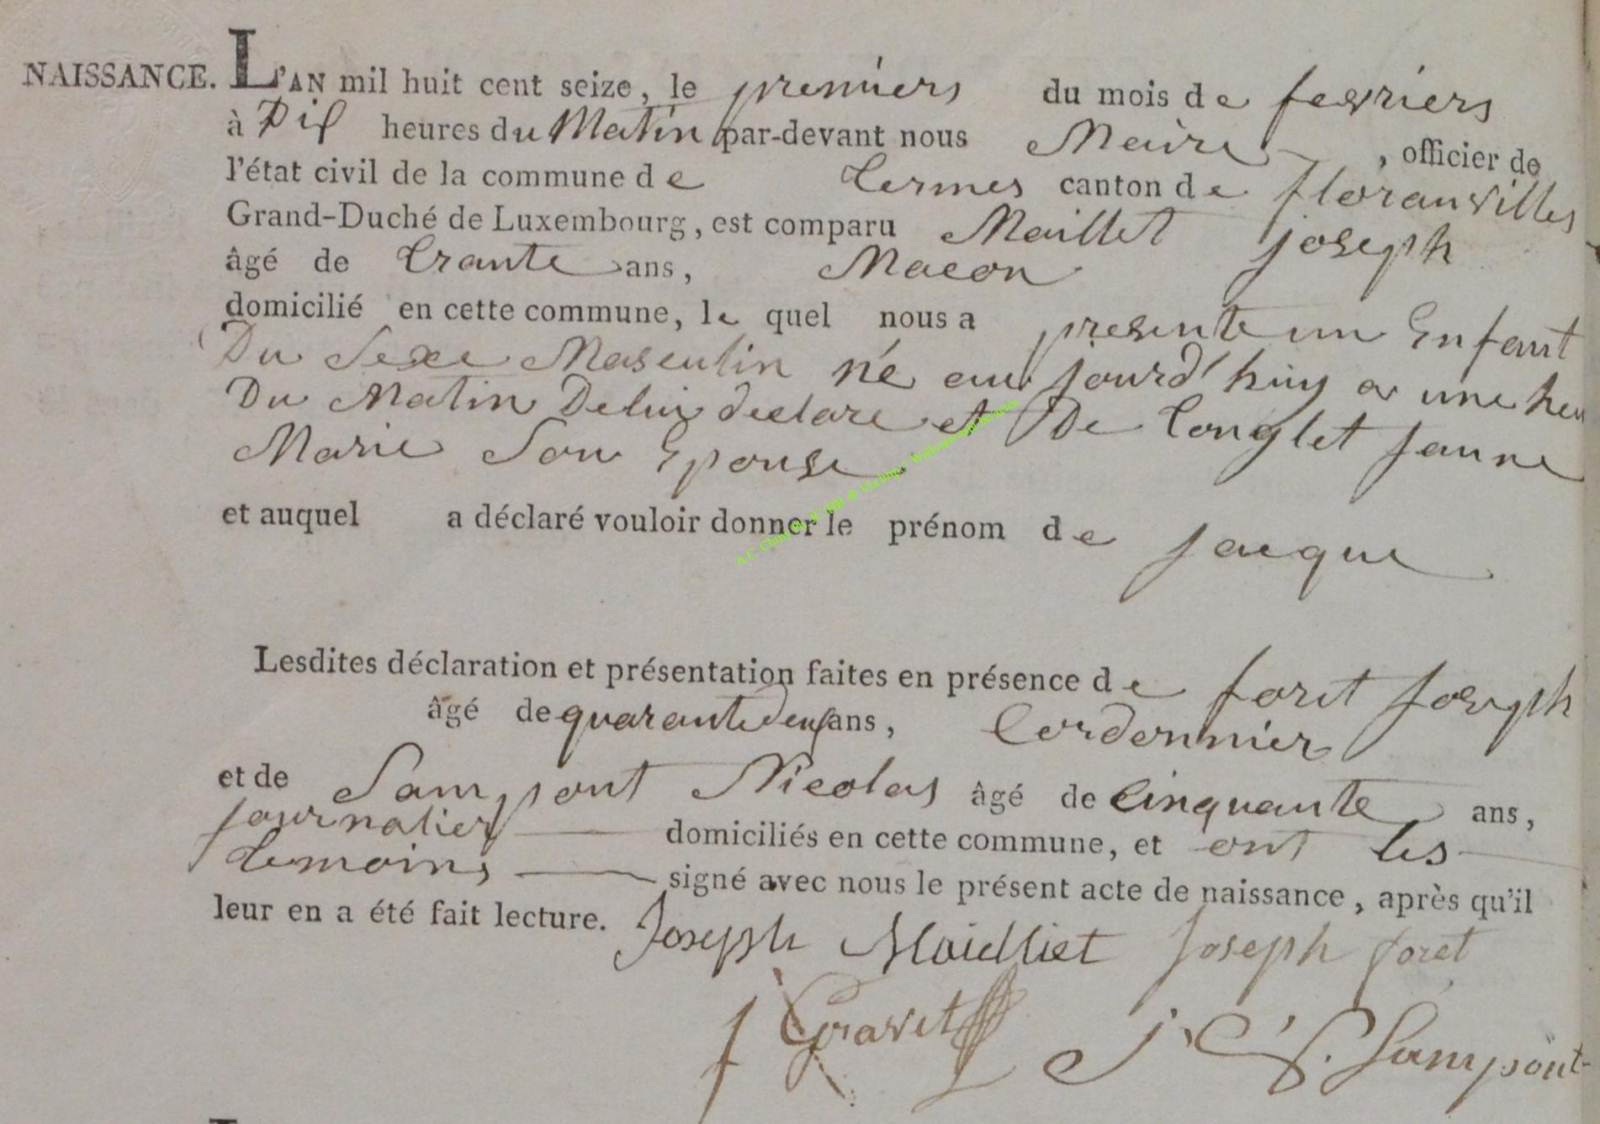 NAISSANCE. L'AN mil huit cent seize, le premiers du mois de fevriers
à Dix heures du Matin par-devant nous Maire, officier de
l'état civil de la commune de termes canton de floranvilles
Grand-Duché de Luxembourg, est comparu Maillet joseph
âgé de trante ans, Macon
domicilié en cette commune, le quel nous a presente un Enfant
Du Sexe Masculin né aujourd'huy a une heu
Du Matin Deluy declare et De Conglet janne
Marie Son Epouse
et auquel a déclaré vouloir donner le prénom de jacque
Lesdites déclaration et présentation faites en présence de foret joseph
âgé de quarantedeux ans, Cordonnier
et de Sampont Nicolas âgé de Cinquante ans,
journalier domiciliés en cette commune, et ont les
temoins signé avec nous le présent acte de naissance, après qu'il
leur en a été fait lecture. Joseph Maidliet joseph foret
j Gravet j S. Sampont